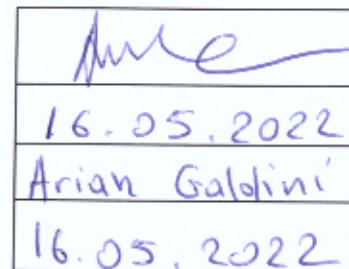 16.05.2022
Arian Galdini
16.05.2022